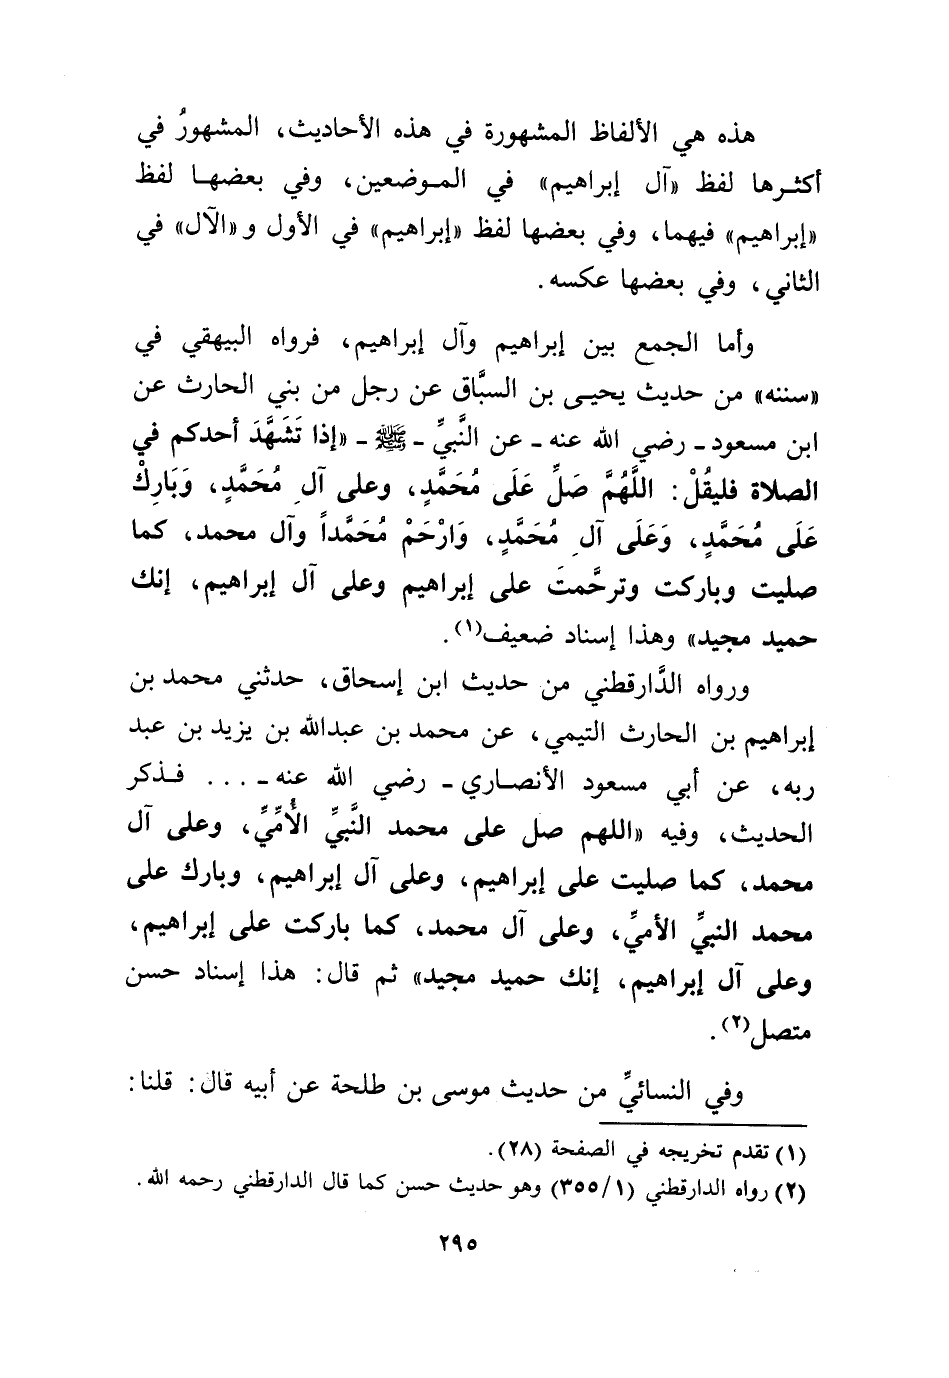 هذه هي الألفاظ المشهورة في هذه الأحاديث، المشهورُ في
أكثرها لفظ «آل إبراهيم» في الموضعين، وفي بعضها لفظ
«إبراهيم» فيهما، وفي بعضها لفظ «إبراهيم» في الأول و«الآل» في
الثاني، وفي بعضها عكسه.
وأما الجمع بين إبراهيم وآل إبراهيم، فرواه البيهقي في
«سننه» من حديث يحيى بن السبَّاق عن رجل من بني الحارث عن
ابن مسعود ـ رضي الله عنه ـ عن النَّبيِّ ـ ﷺ ـ «إذا تَشَهَّدَ أحدكم في
الصلاة فليقُلْ: اللَّهُمَّ صَلِّ عَلَى مُحَمَّدٍ، وعلى آلِ مُحَمَّدٍ، وَبَارِكْ
عَلَى مُحَمَّدٍ، وَعَلَى آلِ مُحَمَّدٍ، وَارْحَمْ مُحَمَّداً وآل محمد، كما
صليت وباركت وترحَّمتَ على إبراهيم وعلى آل إبراهيم، إنك
حميد مجيد» وهذا إسناد ضعيف(١).
ورواه الدَّارقطني من حديث ابن إسحاق، حدثني محمد بن
إبراهيم بن الحارث التيمي، عن محمد بن عبدالله بن يزيد بن عبد
ربه، عن أبي مسعود الأنصاري ـ رضي الله عنه ـ ... فذكر
الحديث، وفيه «اللهم صل على محمد النَّبيِّ الأُمِّيِّ، وعلى آل
محمد، كما صليت على إبراهيم، وعلى آل إبراهيم، وبارك على
محمد النبيِّ الأميِّ، وعلى آل محمد، كما باركت على إبراهيم،
وعلى آل إبراهيم، إنك حميد مجيد» ثم قال: هذا إسناد حسن
متصل(٢).
وفي النسائيِّ من حديث موسى بن طلحة عن أبيه قال: قلنا:
(١) تقدم تخريجه في الصفحة (٢٨).
(٢) رواه الدارقطني (٣٥٥/١) وهو حديث حسن كما قال الدارقطني رحمه الله.
٢٩٥